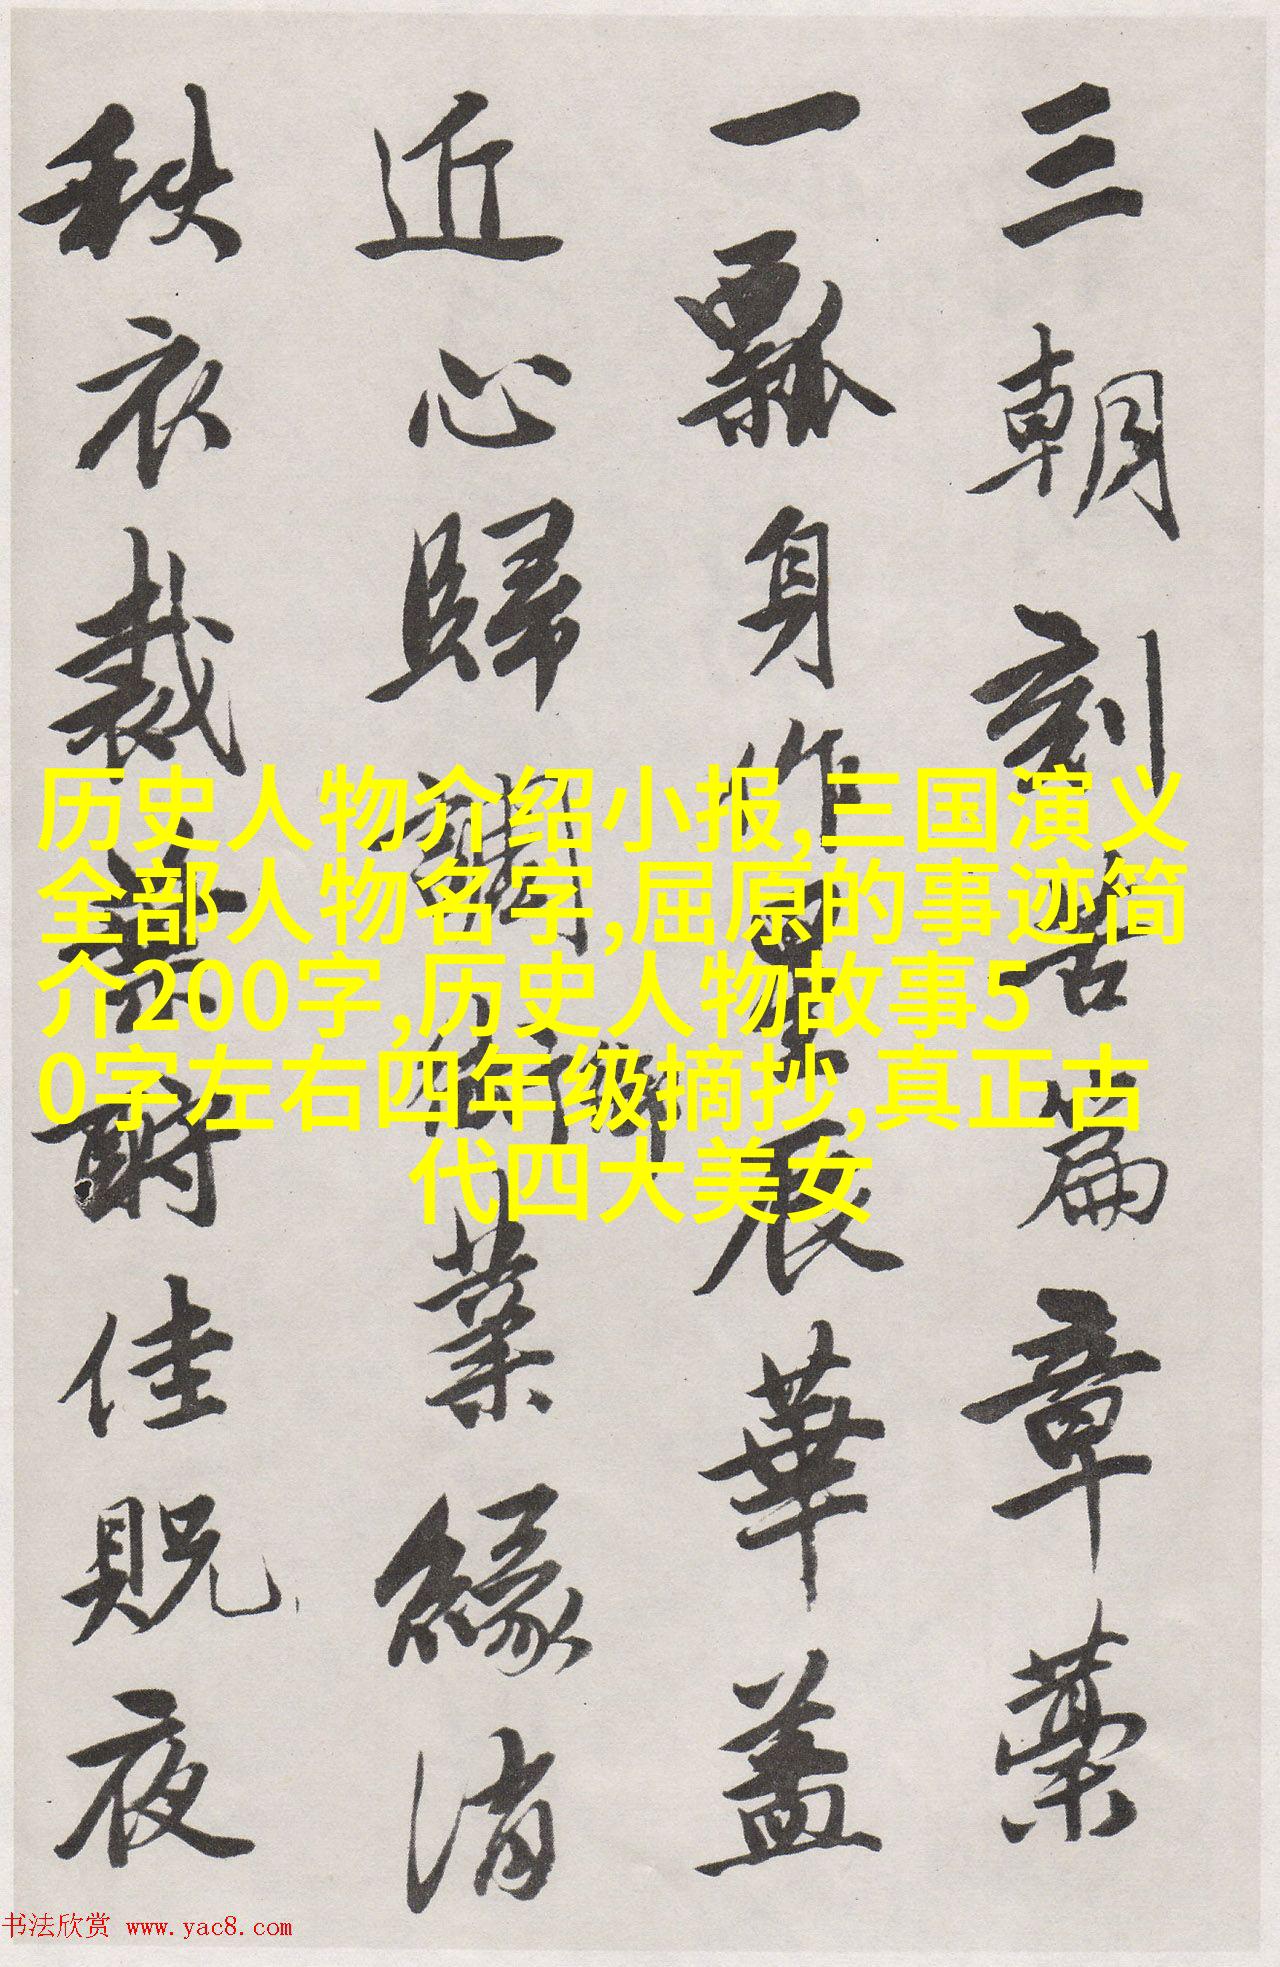 三朝刻苦篇章藁
一瓢身作星辰華蓋
近心歸調御業緣消
秩衣裁酧佳貺夜
历史人物介绍小报,三国演义
全部人物名字,屈原的事迹简
介200字,历史人物故事5
0字左右四年级摘抄,真正古
代四大美女
书法欣赏 www.yac8.com